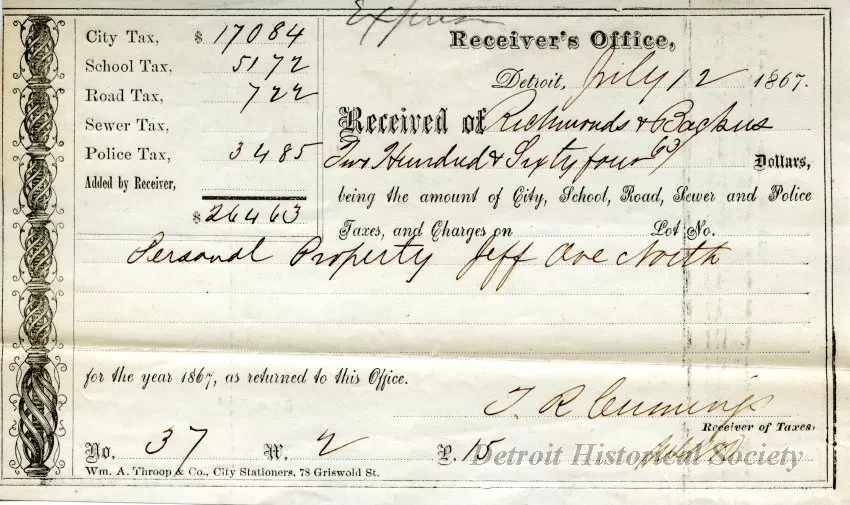 Expense
City Tax, $ 170 84
School Tax, 51 72
Road Tax, 7 22
Sewer Tax,
Police Tax, 34 85
Added by Receiver,
$ 264 63
Receiver's Office,
Detroit, July 12 1867.
Received of Richmonds & Backus
Two Hundred & Sixty four 63/ Dollars,
being the amount of City, School, Road, Sewer and Police
Taxes, and Charges on Lot No.
Personal Property Jeff Ave North
for the year 1867, as returned to this Office.
T. R. Cummings
Receiver of Taxes.
No. 37 W. 2 P. 15
Detroit Historical Society
Wm. A. Throop & Co., City Stationers, 78 Griswold St.